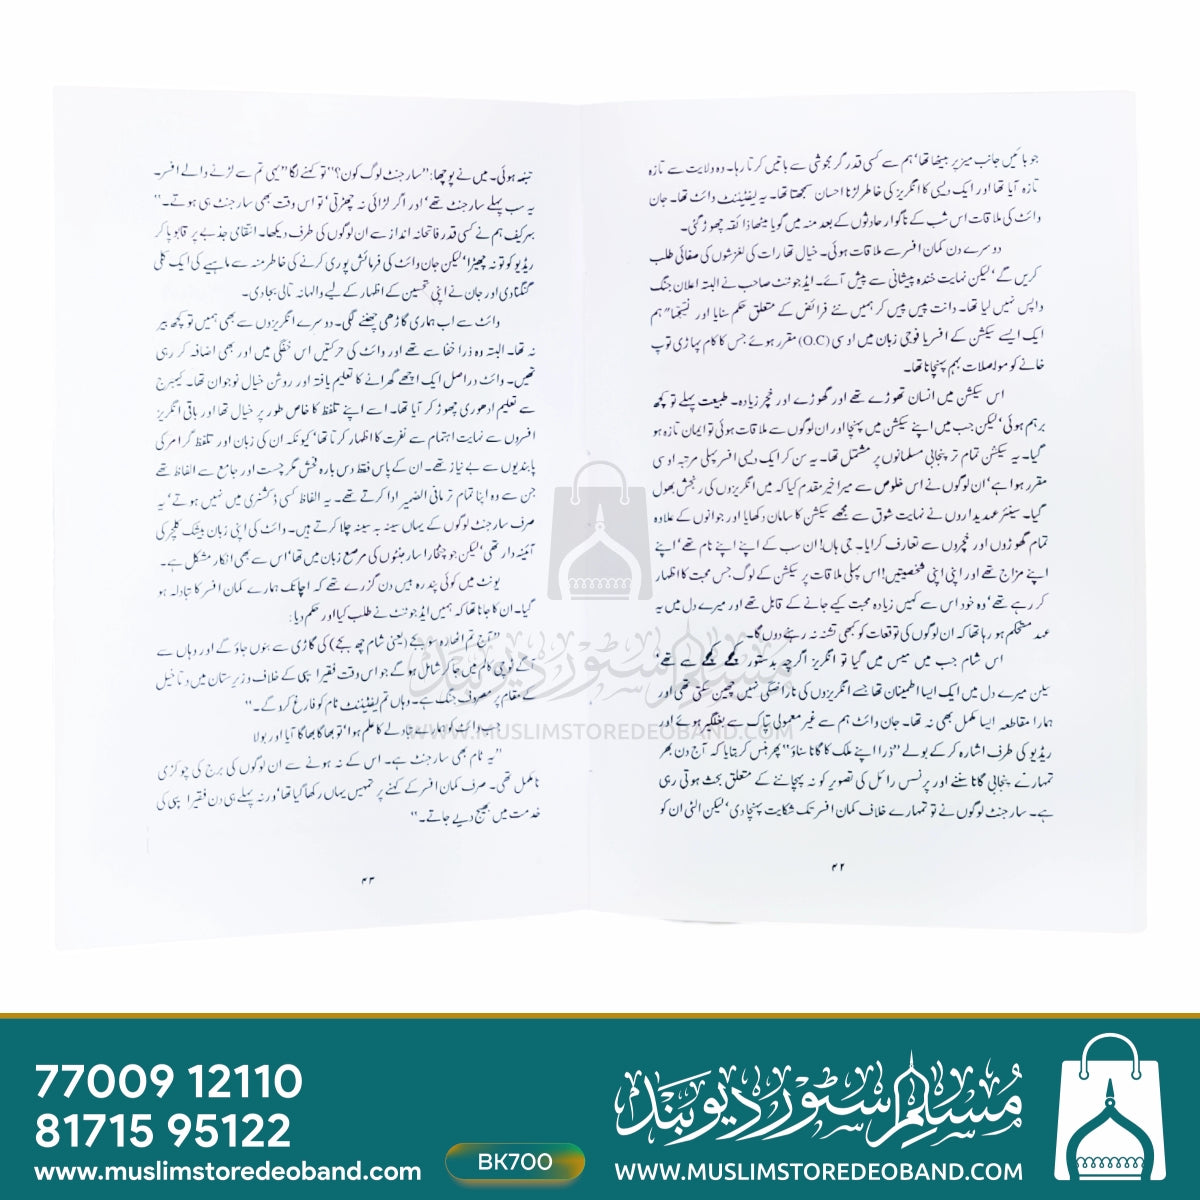 جو بائیں جانب میز پر بیٹھا تھا‘ ہم سے کسی قدر گرمجوشی سے باتیں کرتا رہا۔ وہ ولایت سے تازہ
تازہ آیا تھا اور ایک دیسی کا انگریز کی خاطر لڑنا احسان سمجھتا تھا۔ یہ لیفٹیننٹ وائٹ تھا۔ جان
وائٹ کی ملاقات اس شب کے ناگوار حادثوں کے بعد منہ میں گویا میٹھا ذائقہ چھوڑ گئی۔
دوسرے دن کمان افسر سے ملاقات ہوئی۔ خیال تھا رات کی لغزشوں کی صفائی طلب
کریں گے‘ لیکن نہایت خندہ پیشانی سے پیش آئے۔ ایڈجوٹنٹ صاحب نے البتہ اعلان جنگ
واپس نہیں لیا تھا۔ دانت پیس پیس کر ہمیں نئے فرائض کے متعلق حکم سنایا اور نتیجتاً ہم
ایک ایسے سیکشن کے افسر یا فوجی زبان میں اوسی (O.C) مقرر ہوئے جس کا کام پہاڑی توپ
خانے کو مواصلات بہم پہنچانا تھا۔
اس سیکشن میں انسان تھوڑے تھے اور گھوڑے اور خچر زیادہ۔ طبیعت پہلے تو کچھ
برہم ہوئی‘ لیکن جب میں اپنے سیکشن میں پہنچا اور ان لوگوں سے ملاقات ہوئی تو ایمان تازہ ہو
گیا۔ یہ سیکشن تمام تر پنجابی مسلمانوں پر مشتمل تھا۔ یہ سن کر ایک دیسی افسر پہلی مرتبہ اوسی
مقرر ہوا ہے‘ ان لوگوں نے اس خلوص سے میرا خیر مقدم کیا کہ میں انگریزوں کی رنجش بھول
گیا۔ سینئر عہدیداروں نے نہایت شوق سے مجھے سیکشن کا سامان دکھایا اور جوانوں کے علاوہ
تمام گھوڑوں اور خچروں سے تعارف کرایا۔ جی ہاں! ان سب کے اپنے اپنے نام تھے‘ اپنے
اپنے مزاج تھے اور اپنی اپنی شخصیتیں! اس پہلی ملاقات پر سیکشن کے لوگ جس محبت کا اظہار
کر رہے تھے‘ وہ خود اس سے کہیں زیادہ محبت کیے جانے کے قابل تھے اور میرے دل میں یہ
عہد مستحکم ہو رہا تھا کہ ان لوگوں کی توقعات کو کبھی تشنہ نہ رہنے دوں گا۔
اس شام جب میں میس میں گیا تو انگریز اگرچہ بدستور کھچے کھچے سے تھے‘
لیکن میرے دل میں ایک ایسا اطمینان تھا جسے انگریزوں کی ناراضگی نہیں چھین سکتی تھی اور
ہمارا مقاطعہ ایسا مکمل بھی نہ تھا۔ جان وائٹ ہم سے غیر معمولی تپاک سے بغلگیر ہوئے اور
ریڈیو کی طرف اشارہ کر کے بولے ”ذرا اپنے ملک کا گانا سناؤ“ پھر ہنس کر بتایا کہ آج دن بھر
تمہارے پنجابی گانا سننے اور پرنسس رائل کی تصویر کو نہ پہچاننے کے متعلق بحث ہوتی رہی
ہے۔ سارجنٹ لوگوں نے تو تمہارے خلاف کمان افسر تک شکایت پہنچا دی‘ لیکن الٹی ان کو
۴۲
تنبیہہ ہوئی۔ میں نے پوچھا: ”سارجنٹ لوگ کون؟“ تو کہنے لگا ”یہی تم سے لڑنے والے افسر۔
یہ سب پہلے سارجنٹ تھے‘ اور اگر لڑائی نہ چھڑتی‘ تو اس وقت بھی سارجنٹ ہی ہوتے۔“
بہرکیف ہم نے کسی قدر فاتحانہ انداز سے ان لوگوں کی طرف دیکھا۔ انتقامی جذبے پر قابو پا کر
ریڈیو کو تو نہ چھیڑا‘ لیکن جان وائٹ کی فرمائش پوری کرنے کی خاطر منہ سے ماہیے کی ایک کلی
گنگنا دی اور جان نے اپنی تحسین کے اظہار کے لیے والہانہ تالی بجا دی۔
وائٹ سے اب ہماری گاڑھی چھننے لگی۔ دوسرے انگریزوں سے بھی ہمیں تو کچھ بیر
نہ تھا۔ البتہ وہ ذرا خفا سے تھے اور وائٹ کی حرکتیں اس خفگی میں اور بھی اضافہ کر رہی
تھیں۔ وائٹ دراصل ایک اچھے گھرانے کا تعلیم یافتہ اور روشن خیال نوجوان تھا۔ کیمبرج
سے تعلیم ادھوری چھوڑ کر آیا تھا۔ اسے اپنے تلفظ کا خاص طور پر خیال تھا اور باقی انگریز
افسروں سے نہایت اہتمام سے نفرت کا اظہار کرتا تھا‘ کیونکہ ان کی زبان اور تلفظ گرامر کی
پابندیوں سے بے نیاز تھے۔ ان کے پاس فقط دس بارہ فحش مگر چست اور جامع سے الفاظ تھے
جن سے وہ اپنا تمام تر مافی الضمیر ادا کرتے تھے۔ یہ الفاظ کسی ڈکشنری میں نہیں ہوتے‘ یہ
صرف سارجنٹ لوگوں کے یہاں سینہ بہ سینہ چلا کرتے ہیں۔ وائٹ کی اپنی زبان بیشک کلچر کی
آئینہ دار تھی‘ لیکن جو چٹخارا سارجنٹوں کی مرصع زبان میں تھا‘ اس سے بھی انکار مشکل ہے۔
یونٹ میں کوئی پندرہ بیس دن گزرے تھے کہ اچانک ہمارے کمان افسر کا تبادلہ ہو
گیا۔ ان کا جانا تھا کہ ہمیں ایڈجوٹنٹ نے طلب کیا اور حکم دیا:
”آج تم اٹھارہ سو بجے (یعنی شام چھ بجے) کی گاڑی سے بنوں جاؤ گے اور وہاں سے
آگے ٹوچی کالم میں جا کر شامل ہو گے جو اس وقت فقیر ایپی کے خلاف وزیرستان میں دتاخیل
کے مقام پر مصروف جنگ ہے۔ وہاں تم لیفٹیننٹ ٹام کو فارغ کرو گے۔“
جب وائٹ کو ہمارے تبادلے کا علم ہوا‘ تو بھاگا بھاگا آیا اور بولا
”یہ ٹام بھی سارجنٹ ہے۔ اس کے نہ ہونے سے ان لوگوں کی برج کی چوکڑی
نامکمل تھی۔ صرف کمان افسر کے کہنے پر تمہیں یہاں رکھا گیا تھا‘ ورنہ پہلے ہی دن فقیر ایپی کی
خدمت میں بھیج دیے جاتے۔“
۴۳
مسلم سٹور دیوبند
WWW.MUSLIMSTOREDEOBAND.COM
77009 12110
81715 95122
www.muslimstoredeoband.com
BK700
مسلم سٹور دیوبند
WWW.MUSLIMSTOREDEOBAND.COM